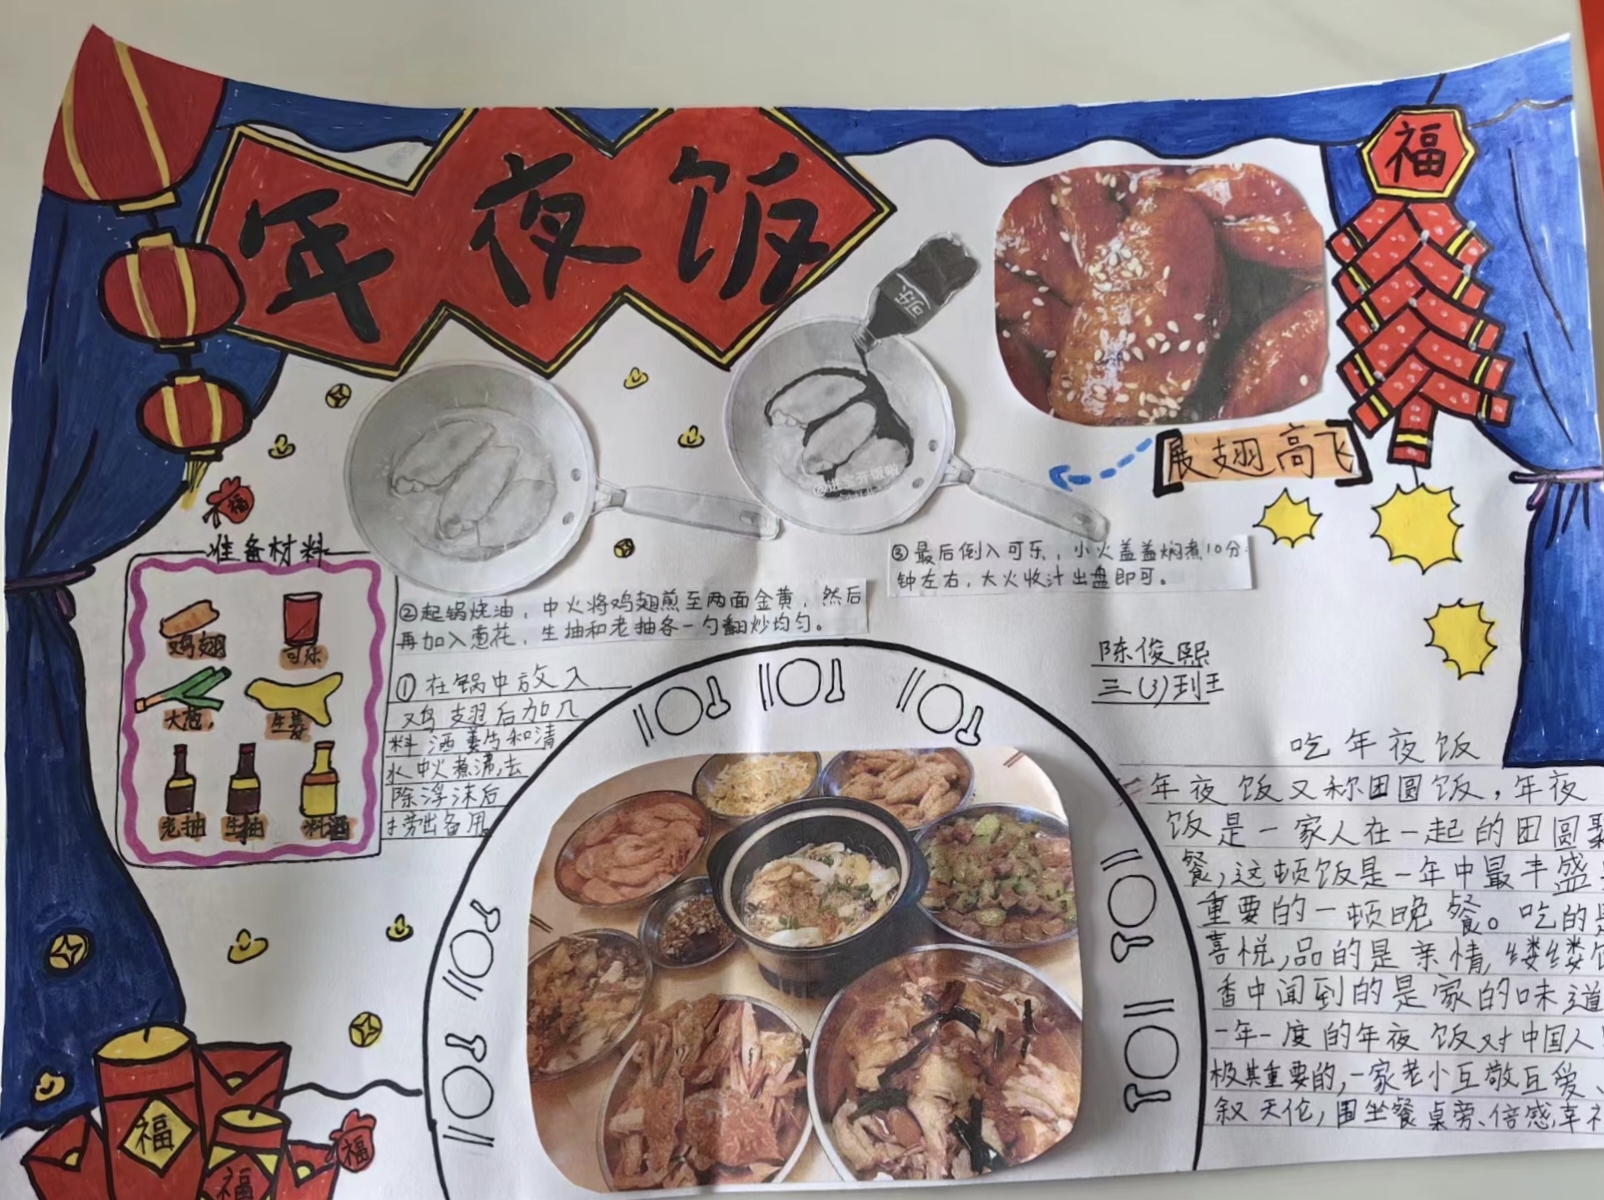 年夜饭
福
可乐
展翅高飞
福
准备材料
鸡翅
可乐
大葱
生姜
老抽
生抽
料酒
②起锅烧油，中火将鸡翅煎至两面金黄，然后
再加入葱花，生抽和老抽各一勺翻炒均匀。
③最后倒入可乐，小火盖盖焖煮10分
钟左右，大火收汁出盘即可。
①在锅中放入
鸡翅后加几
料酒姜片和清
水中火煮沸，去
除浮沫后
捞出备用
陈俊熙
三(3)到王
吃年夜饭
年夜饭又称团圆饭，年夜
饭是一家人在一起的团圆聚
餐，这顿饭是一年中最丰盛
重要的一顿晚餐。吃的是
喜悦，品的是亲情，缕缕饭
香中闻到的是家的味道
一年一度的年夜饭对中国人
极其重要的，一家老小互敬互爱、
叙天伦，围坐餐桌旁、倍感幸
福
福
福